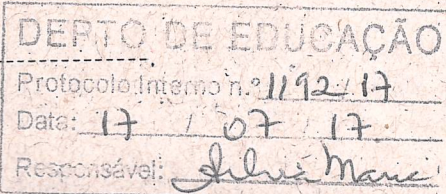 DEPTO DE EDUCAÇÃO
Protocolo Interno n.º 1192/17
Data: 17 / 07 / 17
Responsável: Silvia Maria